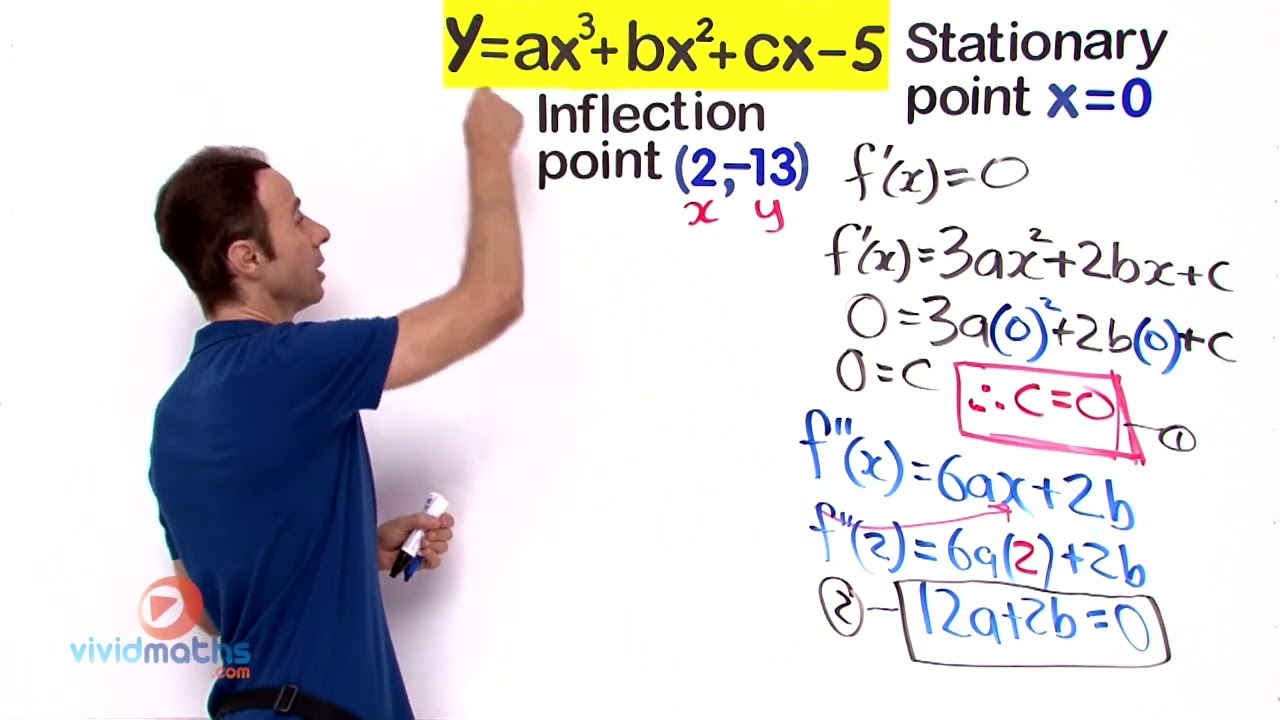 y=ax³+bx²+cx-5
Inflection
point (2,-13)
x y
Stationary
point x=0
f'(x)=0
f'(x)=3ax²+2bx+c
0=3a(0)²+2b(0)+c
0=c
∴c=0
①
f''(x)=6ax+2b
f''(2)=6a(2)+2b
② 12a+2b=0
vividmaths
.com